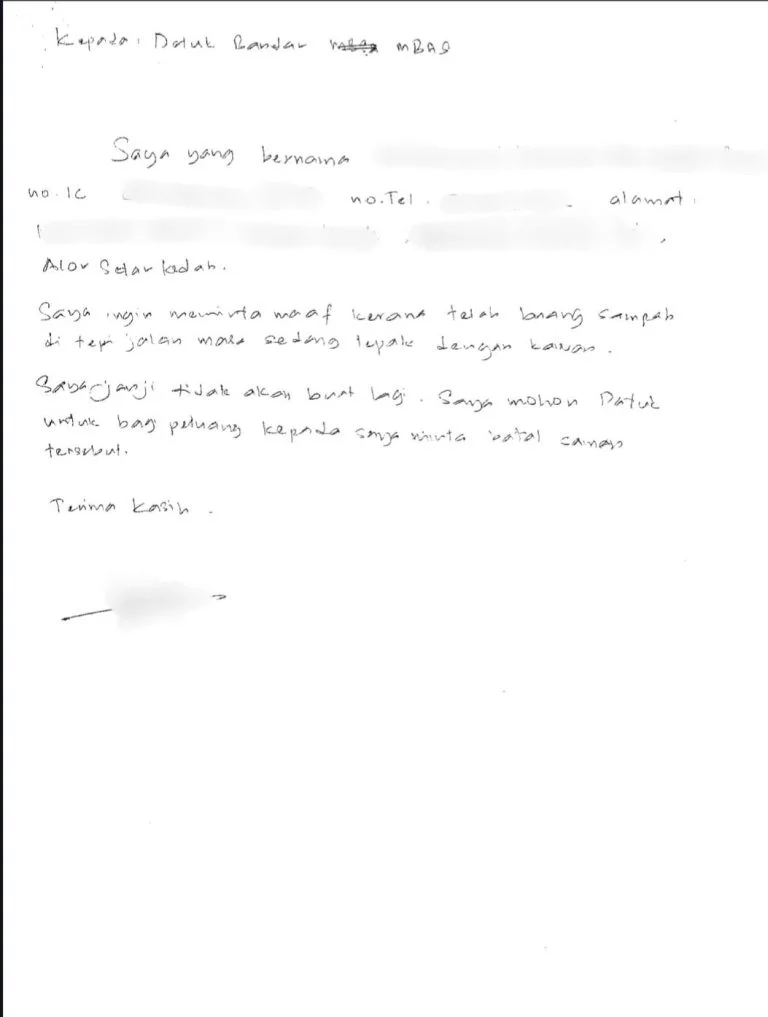 Kepada: Datuk Bandar MBAS
Saya yang bernama
no. Ic no. Tel. alamat:
Alor Setar kedah.
Saya ingin meminta maaf kerana telah buang sampah
di tepi jalan masa sedang lepak dengan kawan.
Saya janji tidak akan buat lagi. Saya mohon Datuk
untuk bagi peluang kepada saya minta batal saman
tersebut.
Terima Kasih.